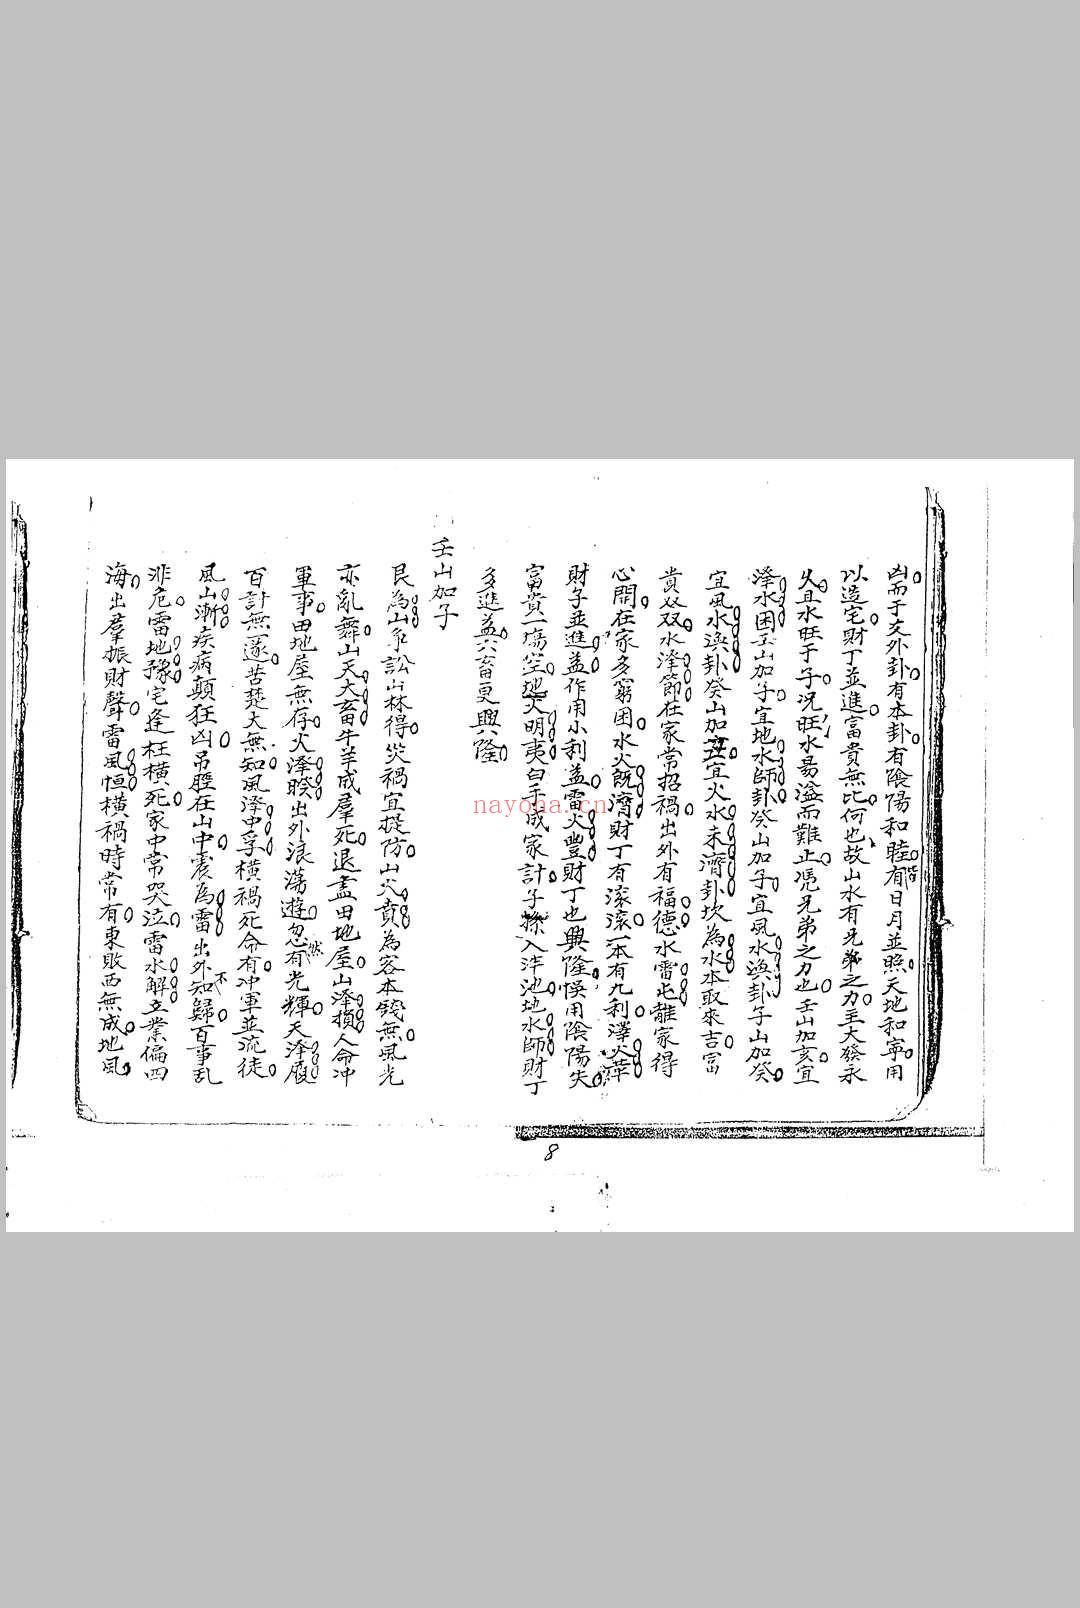 凶而于交外卦有本卦有陰陽和睦有皆日月並照天地和寧用
以造宅財丁並進富貴無比何也故山水有兄弟之力主大發永
久且水旺于子况旺水易溢而難止凴兄弟之力也壬山加亥宜
澤水困壬山加子宜地水師卦癸山加子宜風水渙卦子山加癸
宜風水渙卦癸山加丑宜火水未濟卦坎為水本取來吉富
貴双双水澤節在家常招禍出外有福德水雷屯離家得
心開在家多窮困水火既濟財丁有滾滾一本有九利澤火革
財子並進益作用小利益雷火豐財丁也興隆悞用陰陽失
富貴一塲空地火明夷白手成家計子孫入泮池地水師財丁
多進益六畜更興隆
壬山加子
艮為山爭訟山林得災禍宜提防山火賁為客本錢無風光
亦亂舞山天大畜牛羊成羣死退盡田地屋山澤損人命冲
軍事田地屋無存火澤睽出外浪蕩遊忽然有光輝天澤履
百計無一遂苦楚大無知風澤中孚橫禍死命有冲軍並流徒
風山漸疾病顛狂凶吊脛在山中震為雷出外不知歸百事乱
非危雷地豫宅逢枉橫死家中常哭泣雷水解立業偏四
海出羣振財聲雷風恒橫禍時常有東敗西無成地風
8
nayona.cn